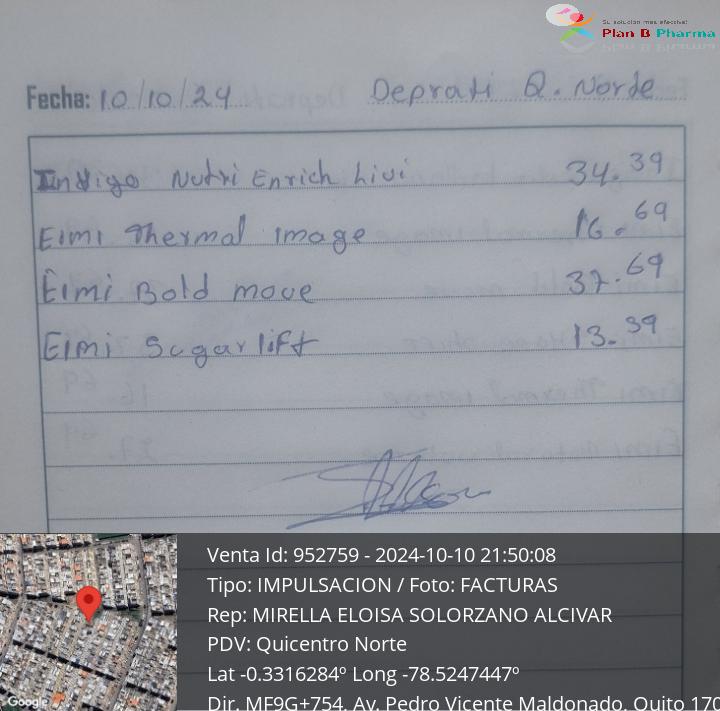 Su solución mas efectiva!
Plan B Pharma
Fecha: 10/10/24 Deprati Q. Norte
Indigo Nutri Enrich Livi 34.39
Eimi Thermal Image 16.69
Eimi Bold move 37.69
Eimi Sugar lift 13.39
Venta Id: 952759 - 2024-10-10 21:50:08
Tipo: IMPULSACION / Foto: FACTURAS
Rep: MIRELLA ELOISA SOLORZANO ALCIVAR
PDV: Quicentro Norte
Lat -0.3316284º Long -78.5247447º
Dir. MF9G+754, Av. Pedro Vicente Maldonado, Quito 170
Google